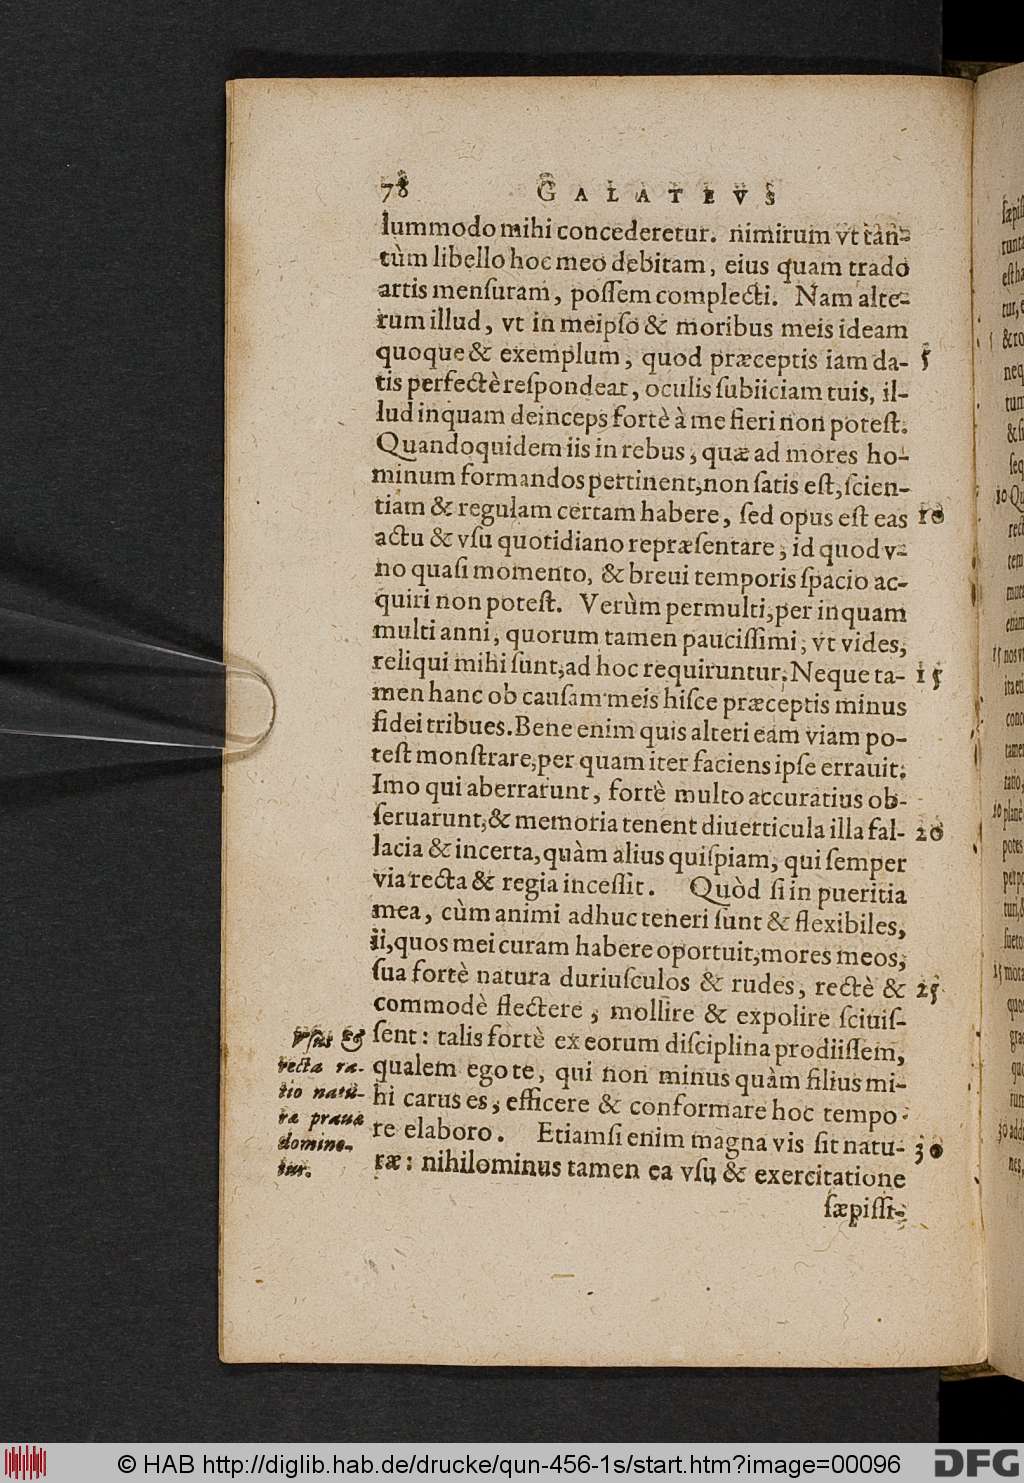 78 GALATEVS
lummodo mihi concederetur. nimirum vt tan-
tùm libello hoc meo debitam, eius quam trado
artis menſuram, poſſem complecti. Nam alte-
rum illud, vt in meipſo & moribus meis ideam
quoque & exemplum, quod præceptis iam da- 5
tis perfectè reſpondeat, oculis ſubiiciam tuis, il-
lud inquam deinceps fortè à me fieri non poteſt.
Quandoquidem iis in rebus, quæ ad mores ho-
minum formandos pertinent, non ſatis eſt, ſcien-
tiam & regulam certam habere, ſed opus eſt eas 10
actu & vſu quotidiano repræſentare, id quod v-
no quaſi momento, & breui temporis ſpacio ac-
quiri non poteſt. Verùm permulti, per inquam
multi anni, quorum tamen pauciſſimi, vt vides,
reliqui mihi ſunt, ad hoc requiruntur. Neque ta- 15
men hanc ob cauſam meis hiſce præceptis minus
fidei tribues. Bene enim quis alteri eam viam po-
teſt monſtrare, per quam iter faciens ipſe errauit.
Imo qui aberrarunt, fortè multo accuratius ob-
ſeruarunt, & memoria tenent diuerticula illa fal- 20
lacia & incerta, quàm alius quiſpiam, qui ſemper
via recta & regia inceſſit. Quòd ſi in pueritia
mea, cùm animi adhuc teneri ſunt & flexibiles,
ii, quos mei curam habere oportuit, mores meos,
ſua fortè natura duriuſculos & rudes, rectè & 25
commodè flectere, mollire & expolire ſciuiſ-
ſent: talis fortè ex eorum diſciplina prodiiſſem,
qualem ego te, qui non minus quàm filius mi-
hi carus es, efficere & conformare hoc tempo-
re elaboro. Etiamſi enim magna vis ſit natu- 30
ræ: nihilominus tamen ea vſu & exercitatione
ſæpiſſi-
Vſus &
recta ra-
tio natu-
ræ prauæ
domine-
tur.
© HAB http://diglib.hab.de/drucke/qun-456-1s/start.htm?image=00096
DFG